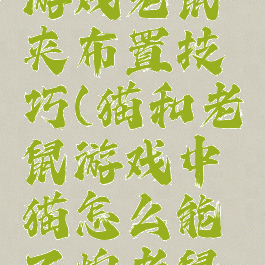 游戏老鼠
夹布置技
巧(猫和老
鼠游戏中
猫怎么能
老鼠